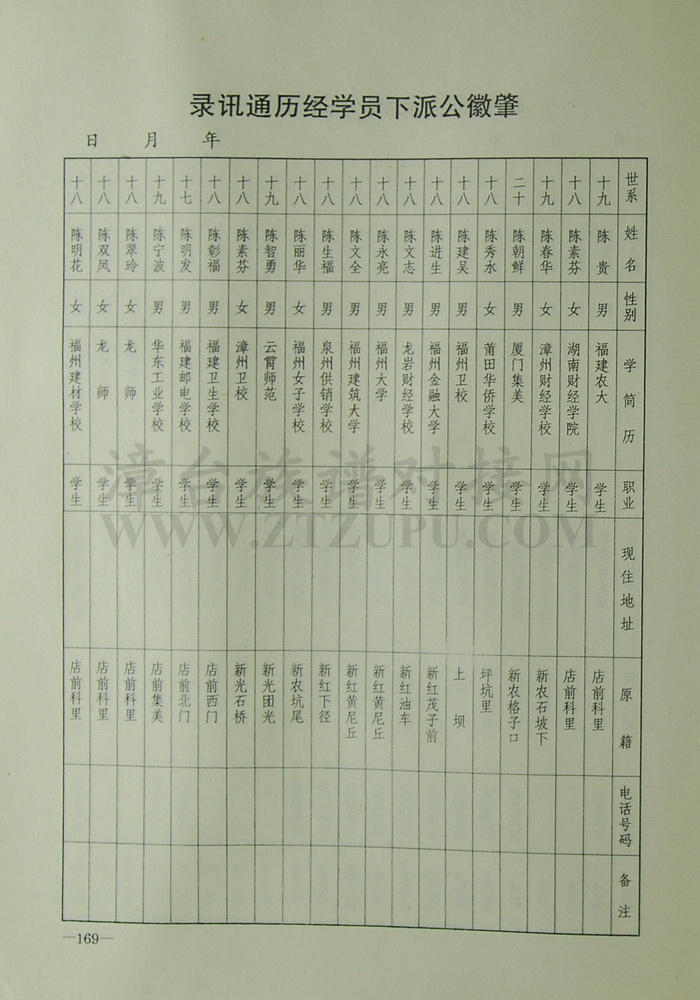 肇徽公派下员学经历通讯录
年 月 日
世系 姓名 性别 学简历 职业 现住地址 原籍 电话号码 备注
十九 陈贵 男 福建农大 学生 店前科里
十八 陈素芬 女 湖南财经学院 学生 店前科里
十九 陈春华 女 漳州财经学校 学生 新农石坡下
二十 陈朝鲜 男 厦门集美 学生 新农格子口
十八 陈秀水 女 莆田华侨学校 学生 坪坑里
十八 陈建吴 男 福州卫校 学生 上坝
十八 陈进生 男 福州金融大学 学生 新红茂子前
十八 陈文志 男 龙岩财经学校 学生 新红油车
十八 陈永亮 男 福州大学 学生 新红黄尼丘
十八 陈文全 男 福州建筑大学 学生 新红黄尼丘
十八 陈生福 男 泉州供销学校 学生 新红下径
十八 陈丽华 女 福州女子学校 学生 新农坑尾
十九 陈智勇 男 云霄师范 学生 新光团光
十八 陈素芬 女 漳州卫校 学生 新光石桥
十八 陈彰福 男 福建卫生学校 学生 店前西门
十七 陈明发 男 福建邮电学校 学生 店前北门
十九 陈宁波 男 华东工业学校 学生 店前集美
十八 陈翠玲 女 龙师 学生 店前科里
十八 陈双凤 女 龙师 学生 店前科里
十八 陈明花 女 福州建材学校 学生 店前科里
漳台族谱对接网
WWW.ZTZUPU.COM
—169—